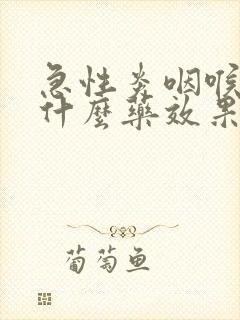 急性炎咽喉
什麼藥效果
葡萄鱼